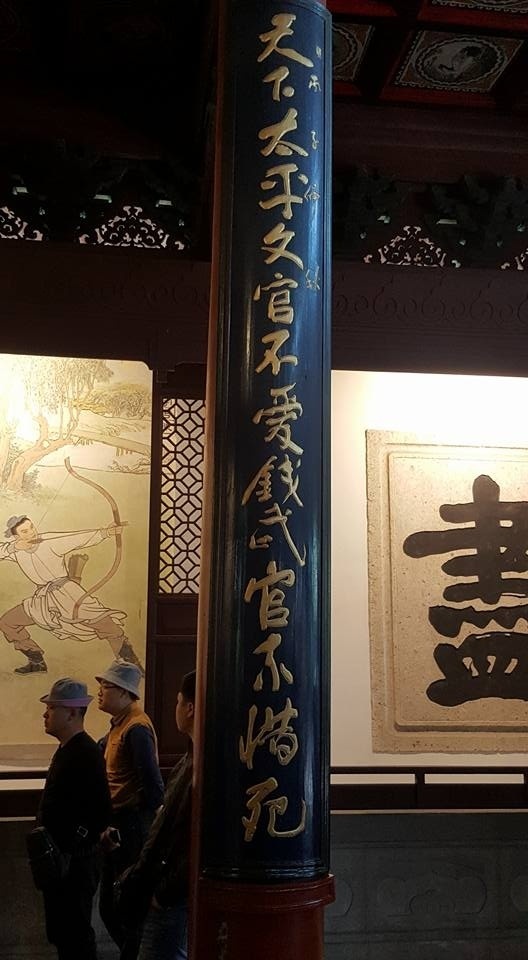 天下太平文官不爱錢武官不惜死
盡